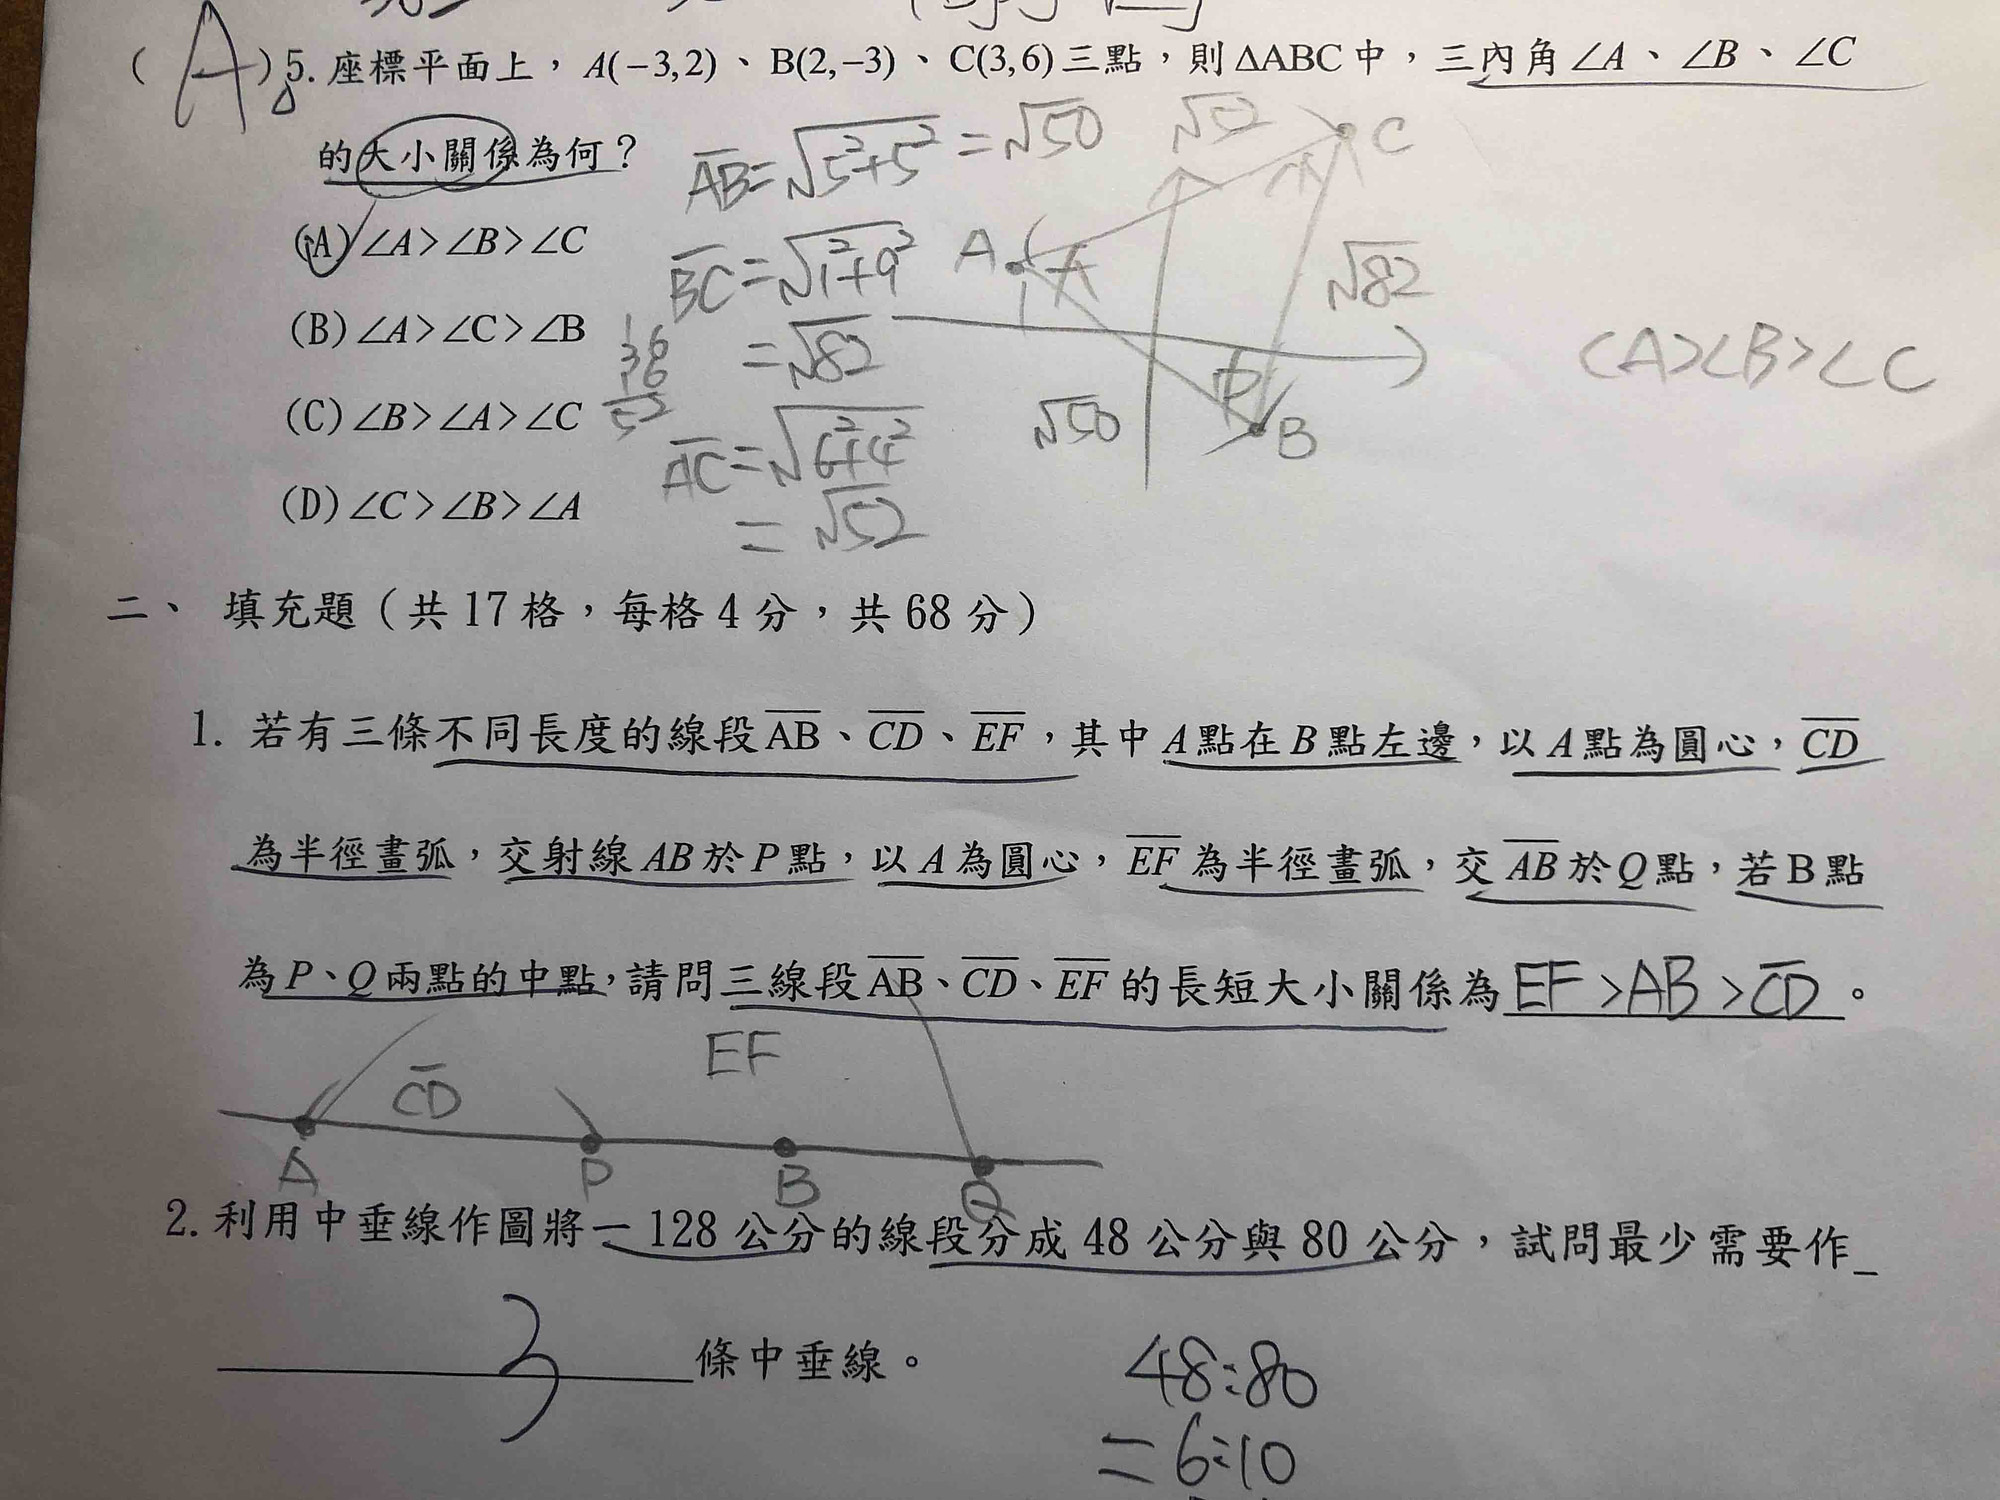 ( A ) 5. 座標平面上，A(−3,2)、B(2,−3)、C(3,6)三點，則ΔABC中，三內角∠A、∠B、∠C
的大小關係為何？
(A) ∠A>∠B>∠C
(B) ∠A>∠C>∠B
(C) ∠B>∠A>∠C
(D) ∠C>∠B>∠A
AB=√5²+5² =√50
BC=√1²+9²
=√82
AC=√6²+4²
=√52
16
36
52
√52
C
A
√82
√50
B
∠A>∠B>∠C
二、 填充題（共17格，每格4分，共68分）
1. 若有三條不同長度的線段AB、CD、EF，其中A點在B點左邊，以A點為圓心，CD
為半徑畫弧，交射線AB於P點，以A為圓心，EF為半徑畫弧，交AB於Q點，若B點
為P、Q兩點的中點，請問三線段AB、CD、EF的長短大小關係為 EF>AB>CD。
CD EF
A P B Q
2. 利用中垂線作圖將一128公分的線段分成48公分與80公分，試問最少需要作_
3 條中垂線。
48:80
=6:10